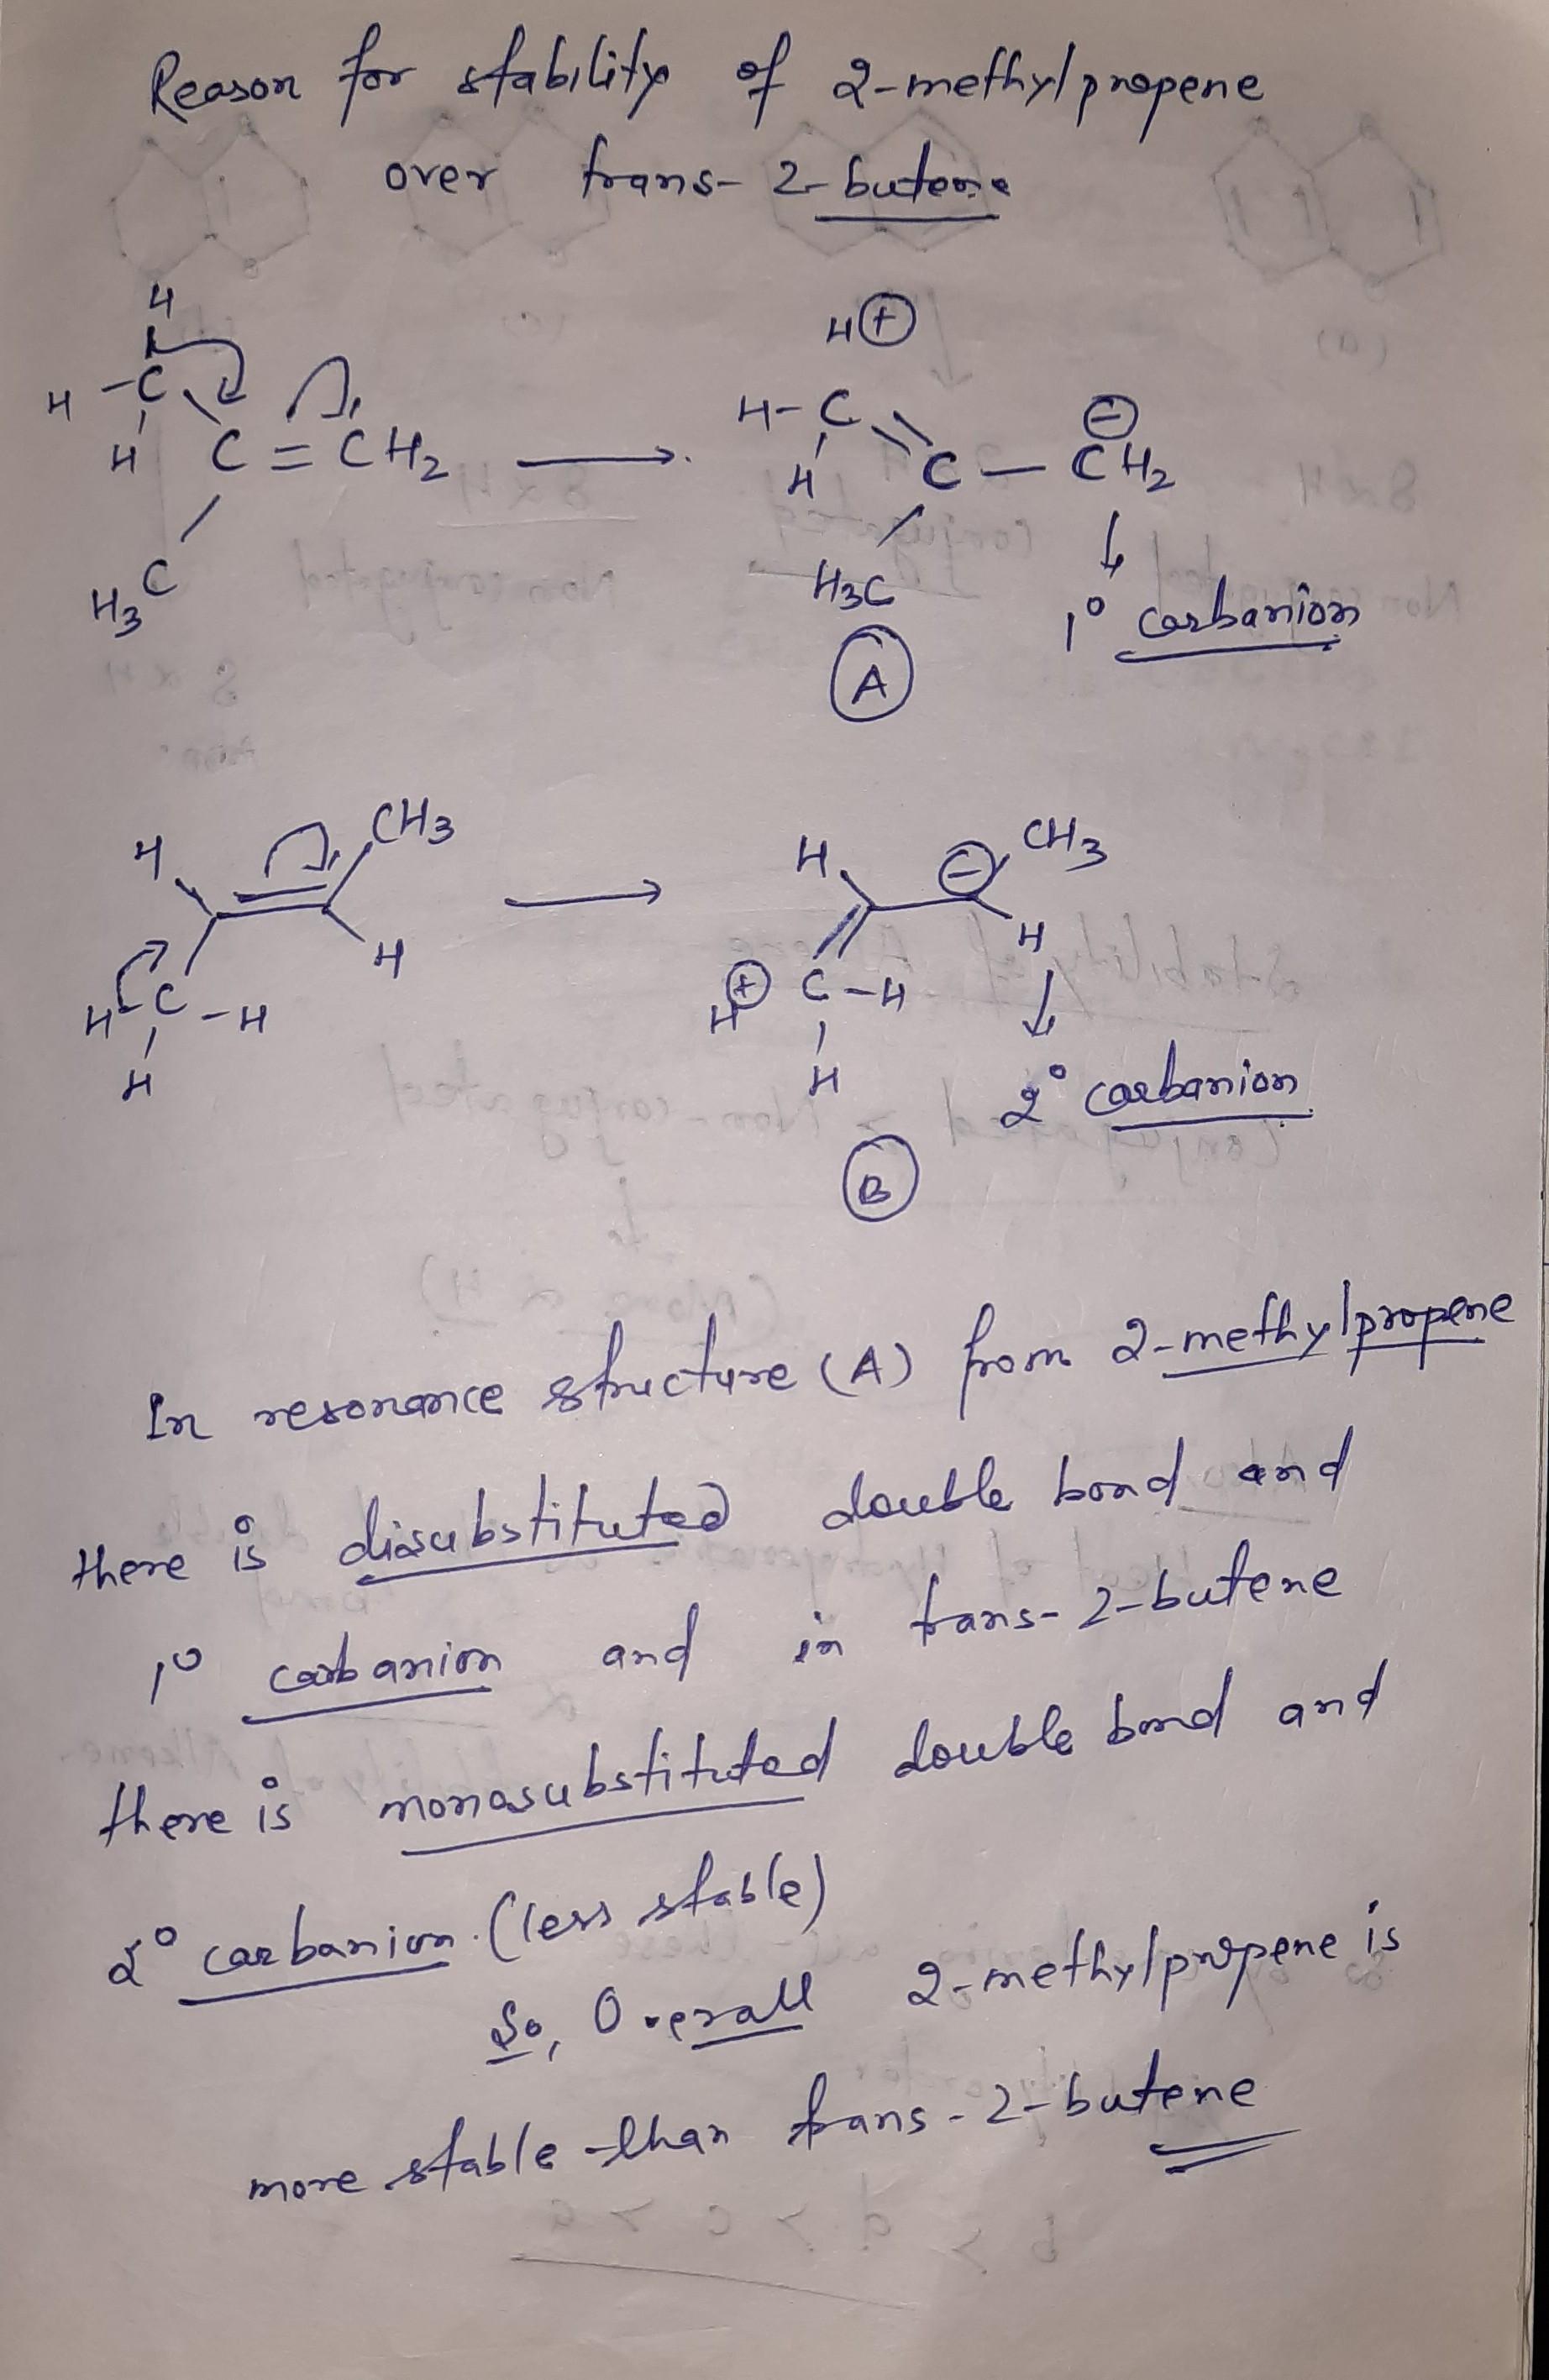 Reason for stability of 2-methylpropene
over trans-2-butene
H
H-C
H C=CH2
H3C
H⊕
H-C
H C-CH2
⊖
H3C
1° carbanion
A
H CH3
H
H-C-H
H
H ⊖ CH3
H
H⊕ C-H
H
2° carbanion
B
In resonance structure (A) from 2-methylpropene
there is disubstituted double bond and
1° carbanion and in trans-2-butene
there is monosubstituted double bond and
2° carbanion (less stable)
So, Overall 2-methylpropene is
more stable than trans-2-butene